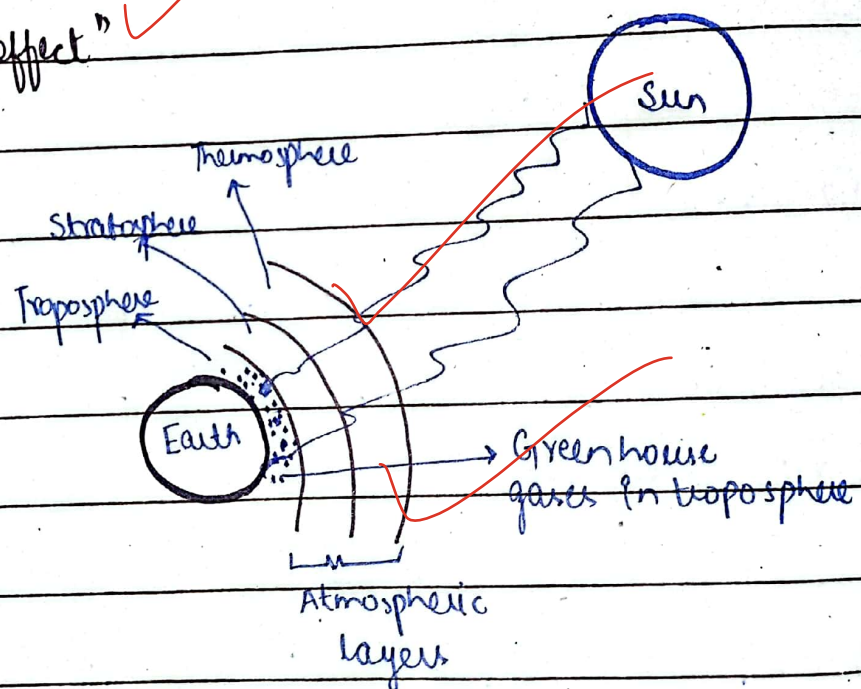 effect"
Sun
Thermosphere
Stratosphere
Troposphere
Earth
Greenhouse
gases in troposphere
Atmospheric
layers